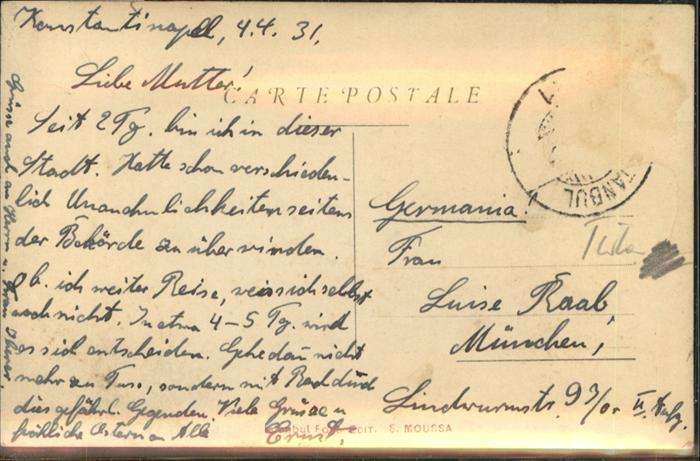 Konstantinopel, 4.4.31.
Liebe Mutter!
CARTE POSTALE
Seit 2 Tg. bin ich in dieser
Stadt. Hatte schon verschieden-
lich Unannehmlichkeiten seitens
der Behörde zu überwinden.
Ob ich weiter Reise, weiss ich selbst
noch nicht. In etwa 4-5 Tg. wird
es sich entscheiden. Gehe dann nicht
mehr zu Fuss, sondern mit Rad durch
dies gefährl. Gegenden. Viele Grüsse u
fröhliche Ostern an Alle
Ernst.
Grüsse auch an Herrn u. Frau
ISTANBUL
Germania.
Frau
Luise Raab,
München,
Lindwurmstr. 93/0. II. Aufg.
Istanbul EDIT. S. MOUSSA